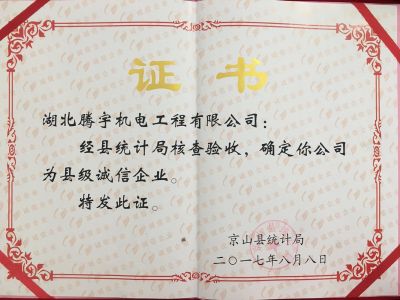 证书
湖北腾宇机电工程有限公司：
经县统计局核查验收，确定你公司
为县级诚信企业。
特发此证。
京山县统计局
二〇一七年八月八日